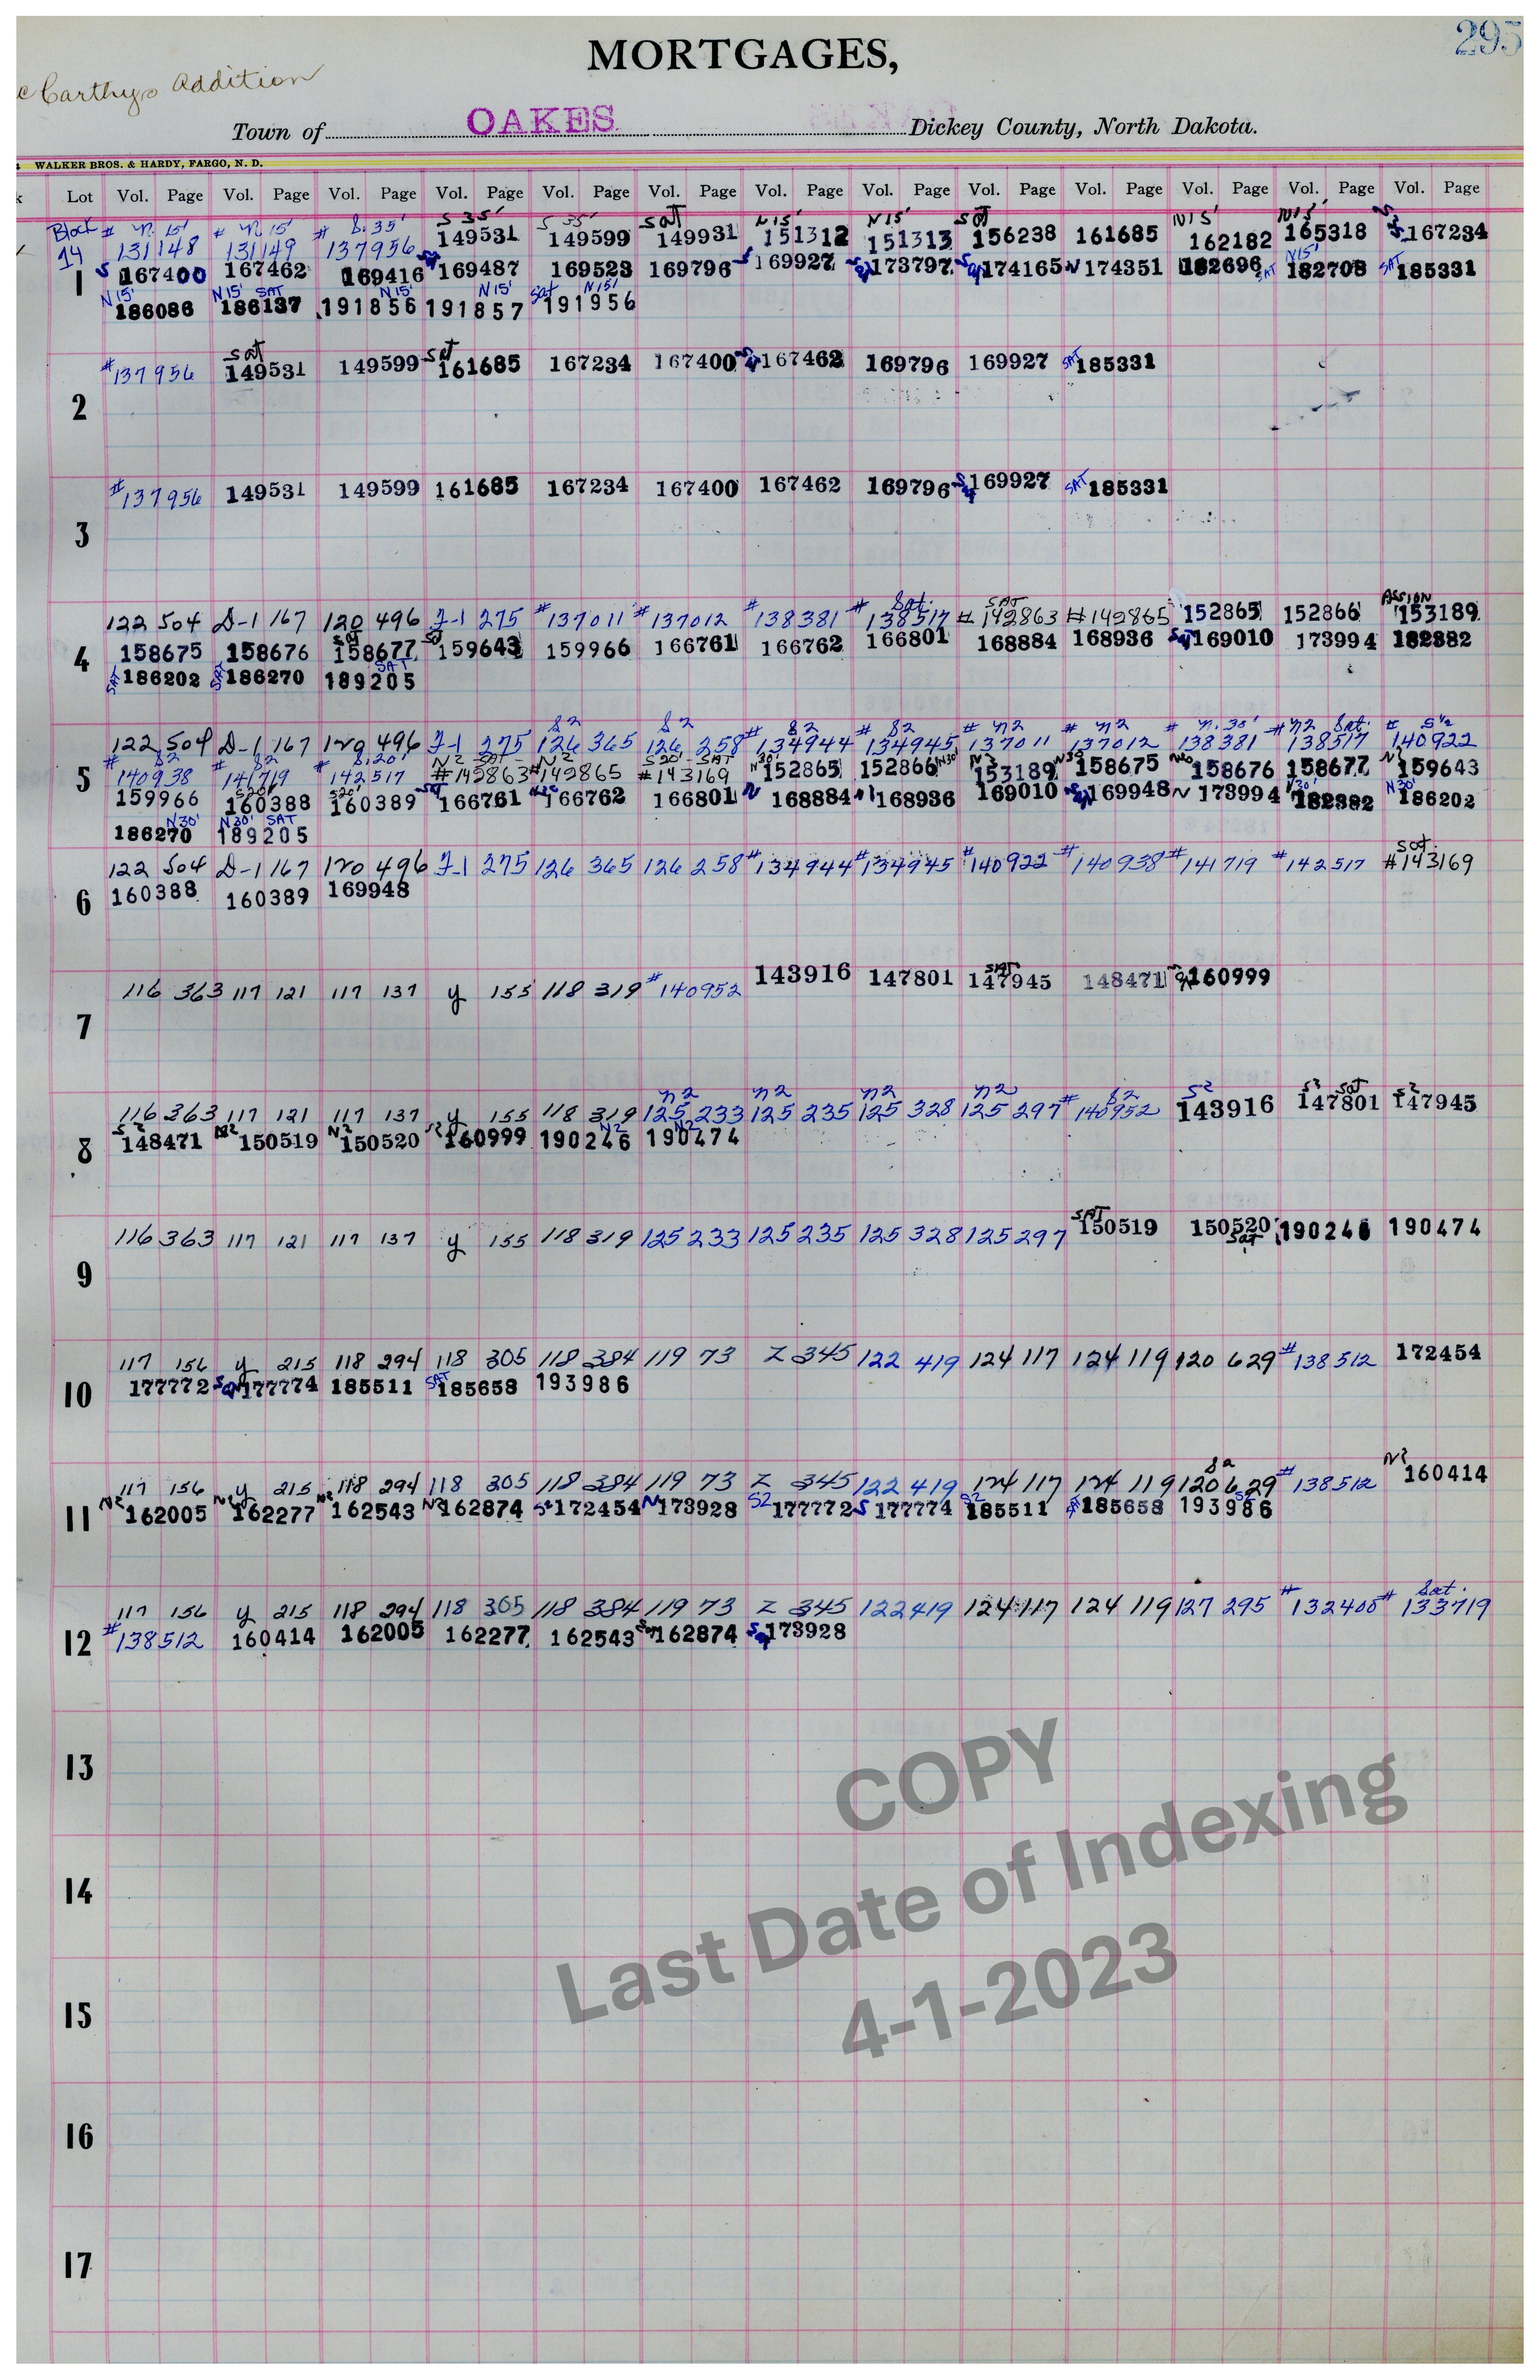 295
MORTGAGES,
c Carthys Addition
Town of OAKES Dickey County, North Dakota.
WALKER BROS. & HARDY, FARGO, N. D.
k Lot Vol. Page Vol. Page Vol. Page Vol. Page Vol. Page Vol. Page Vol. Page Vol. Page Vol. Page Vol. Page Vol. Page Vol. Page Vol. Page
Block # N. 15' # N. 15' # S. 35' S 35' S 35' sat N15' N15' sat N15' N15'
14 131148 131149 137956 149531 149599 149931 151312 151313 156238 161685 162182 165318 167234
1 167400 167462 169416 169487 169523 169796 169927 173797 174165 N 174351 182696 SAT N15' 182708 SAT 185331
N15' 186086 N15' SAT 186137 N15' 191856 N15' 191857 Sat N15' 191956
2 #137956 sat 149531 149599 sat 161685 167234 167400 167462 169796 169927 SAT 185331
3 #137956 149531 149599 161685 167234 167400 167462 169796 169927 SAT 185331
122 504 D-1 167 120 496 J-1 275 #137011 #137012 #138381 # Sat. 138517 # SAT 142863 #142865 152865 152866 ASSION 153189
4 158675 158676 sat 158677 159643 159966 166761 166762 166801 168884 168936 169010 173994 182382
SAT 186202 SAT 186270 SAT 189205
S2 S2 # S2 # S2 # N2 # N2 # N. 30' #N2 Sat. # S½
122 504 D-1 167 120 496 J-1 275 126 365 126 258 134944 134945 137011 137012 138381 138517 140922
# S2 # S2 # S. 20' N2 SAT N2 S20' SAT
5 140938 141719 142517 #142863 #142865 #143169 152865 152866 153189 158675 158676 158677 159643
159966 S20' 160388 S20' 160389 166761 166762 166801 N 168884 168936 169010 169948 N 173994 N30' 182382 N30' 186202
N30' 186270 N30' SAT 189205
122 504 D-1 167 120 496 J-1 275 126 365 126 258 #134944 #134945 #140922 #140938 #141719 #142517 Sat. #143169
6 160388 160389 169948
7 116 363 117 121 117 137 y 155 118 319 #140952 143916 147801 SAT 147945 148471 160999
N2 N2 N2 N2 # S2 S2 S2 sat S2
116 363 117 121 117 137 y 155 118 319 125 233 125 235 125 328 125 297 140952 143916 147801 147945
8 S2 148471 N2 150519 N2 150520 S2 160999 N2 190246 N2 190474
9 116 363 117 121 117 137 y 155 118 319 125 233 125 235 125 328 125 297 SAT 150519 150520 Sat 190246 190474
117 156 y 215 118 294 118 305 118 384 119 73 Z 345 122 419 124 117 124 119 120 629 #138512 172454
10 177772 177774 185511 SAT 185658 193986
117 156 y 215 118 294 118 305 118 384 119 73 Z 345 122 419 124 117 124 119 120 629 #138512 N2 160414
11 N2 162005 N2 162277 N2 162543 N2 162874 S2 172454 N 173928 S2 177772 S 177774 S2 185511 185658 S2 193986
117 156 y 215 118 294 118 305 118 384 119 73 Z 345 122 419 124 117 124 119 127 295 #132400 # Sat. 133719
12 #138512 160414 162005 162277 162543 162874 173928
13
14
15
16
17
COPY
Last Date of Indexing
4-1-2023